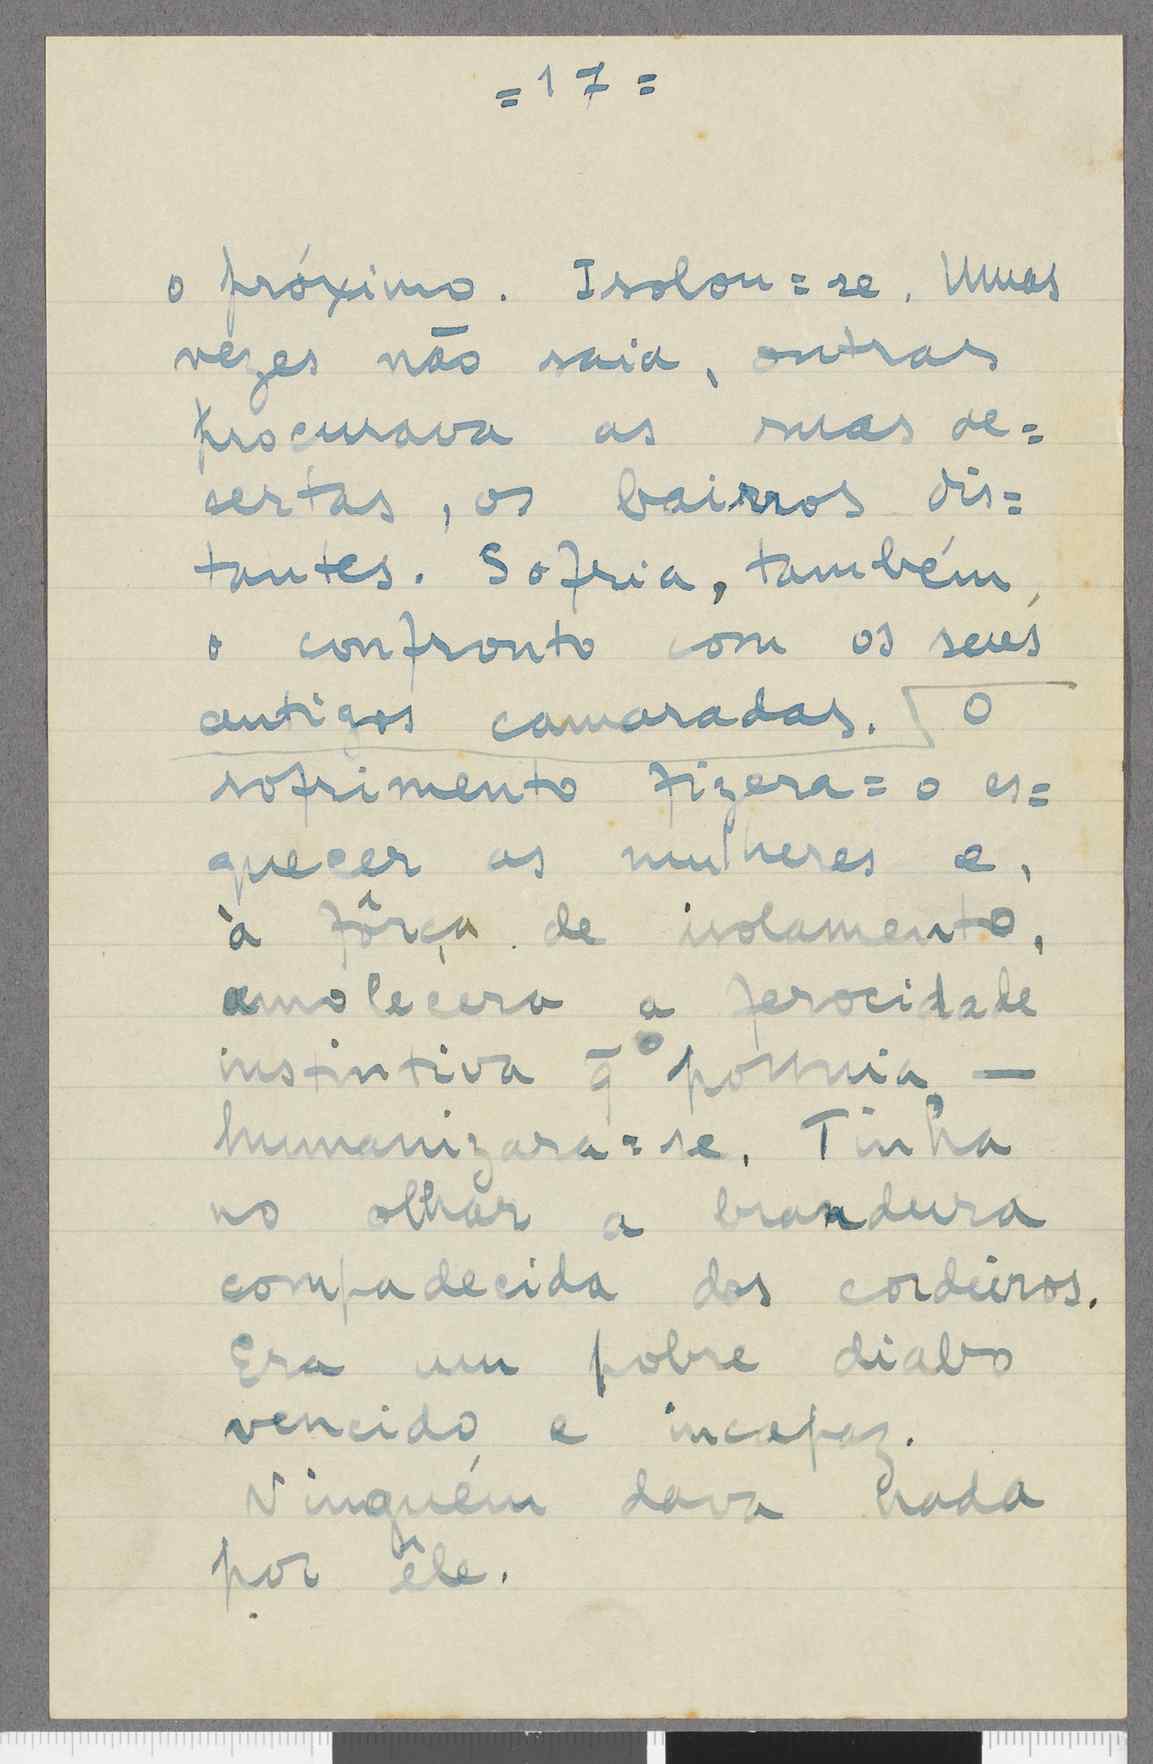 = 17 =
o próximo. Isolou=se. Umas
vezes não saia, outras
procurava as ruas de=
sertas, os bairros dis=
tantes. Sofria, também,
o confronto com os seus
antigos camaradas. O
sofrimento fizera=o es=
quecer as mulheres e,
à fôrça de isolamento,
amolecera a ferocidade
instintiva q̄ o possuia, —
humanizara=se. Tinha
no olhar a brandura
compadecida dos cordeiros.
Era um pobre diabo
vencido e incapaz.
Ninguém dava nada
por êle.